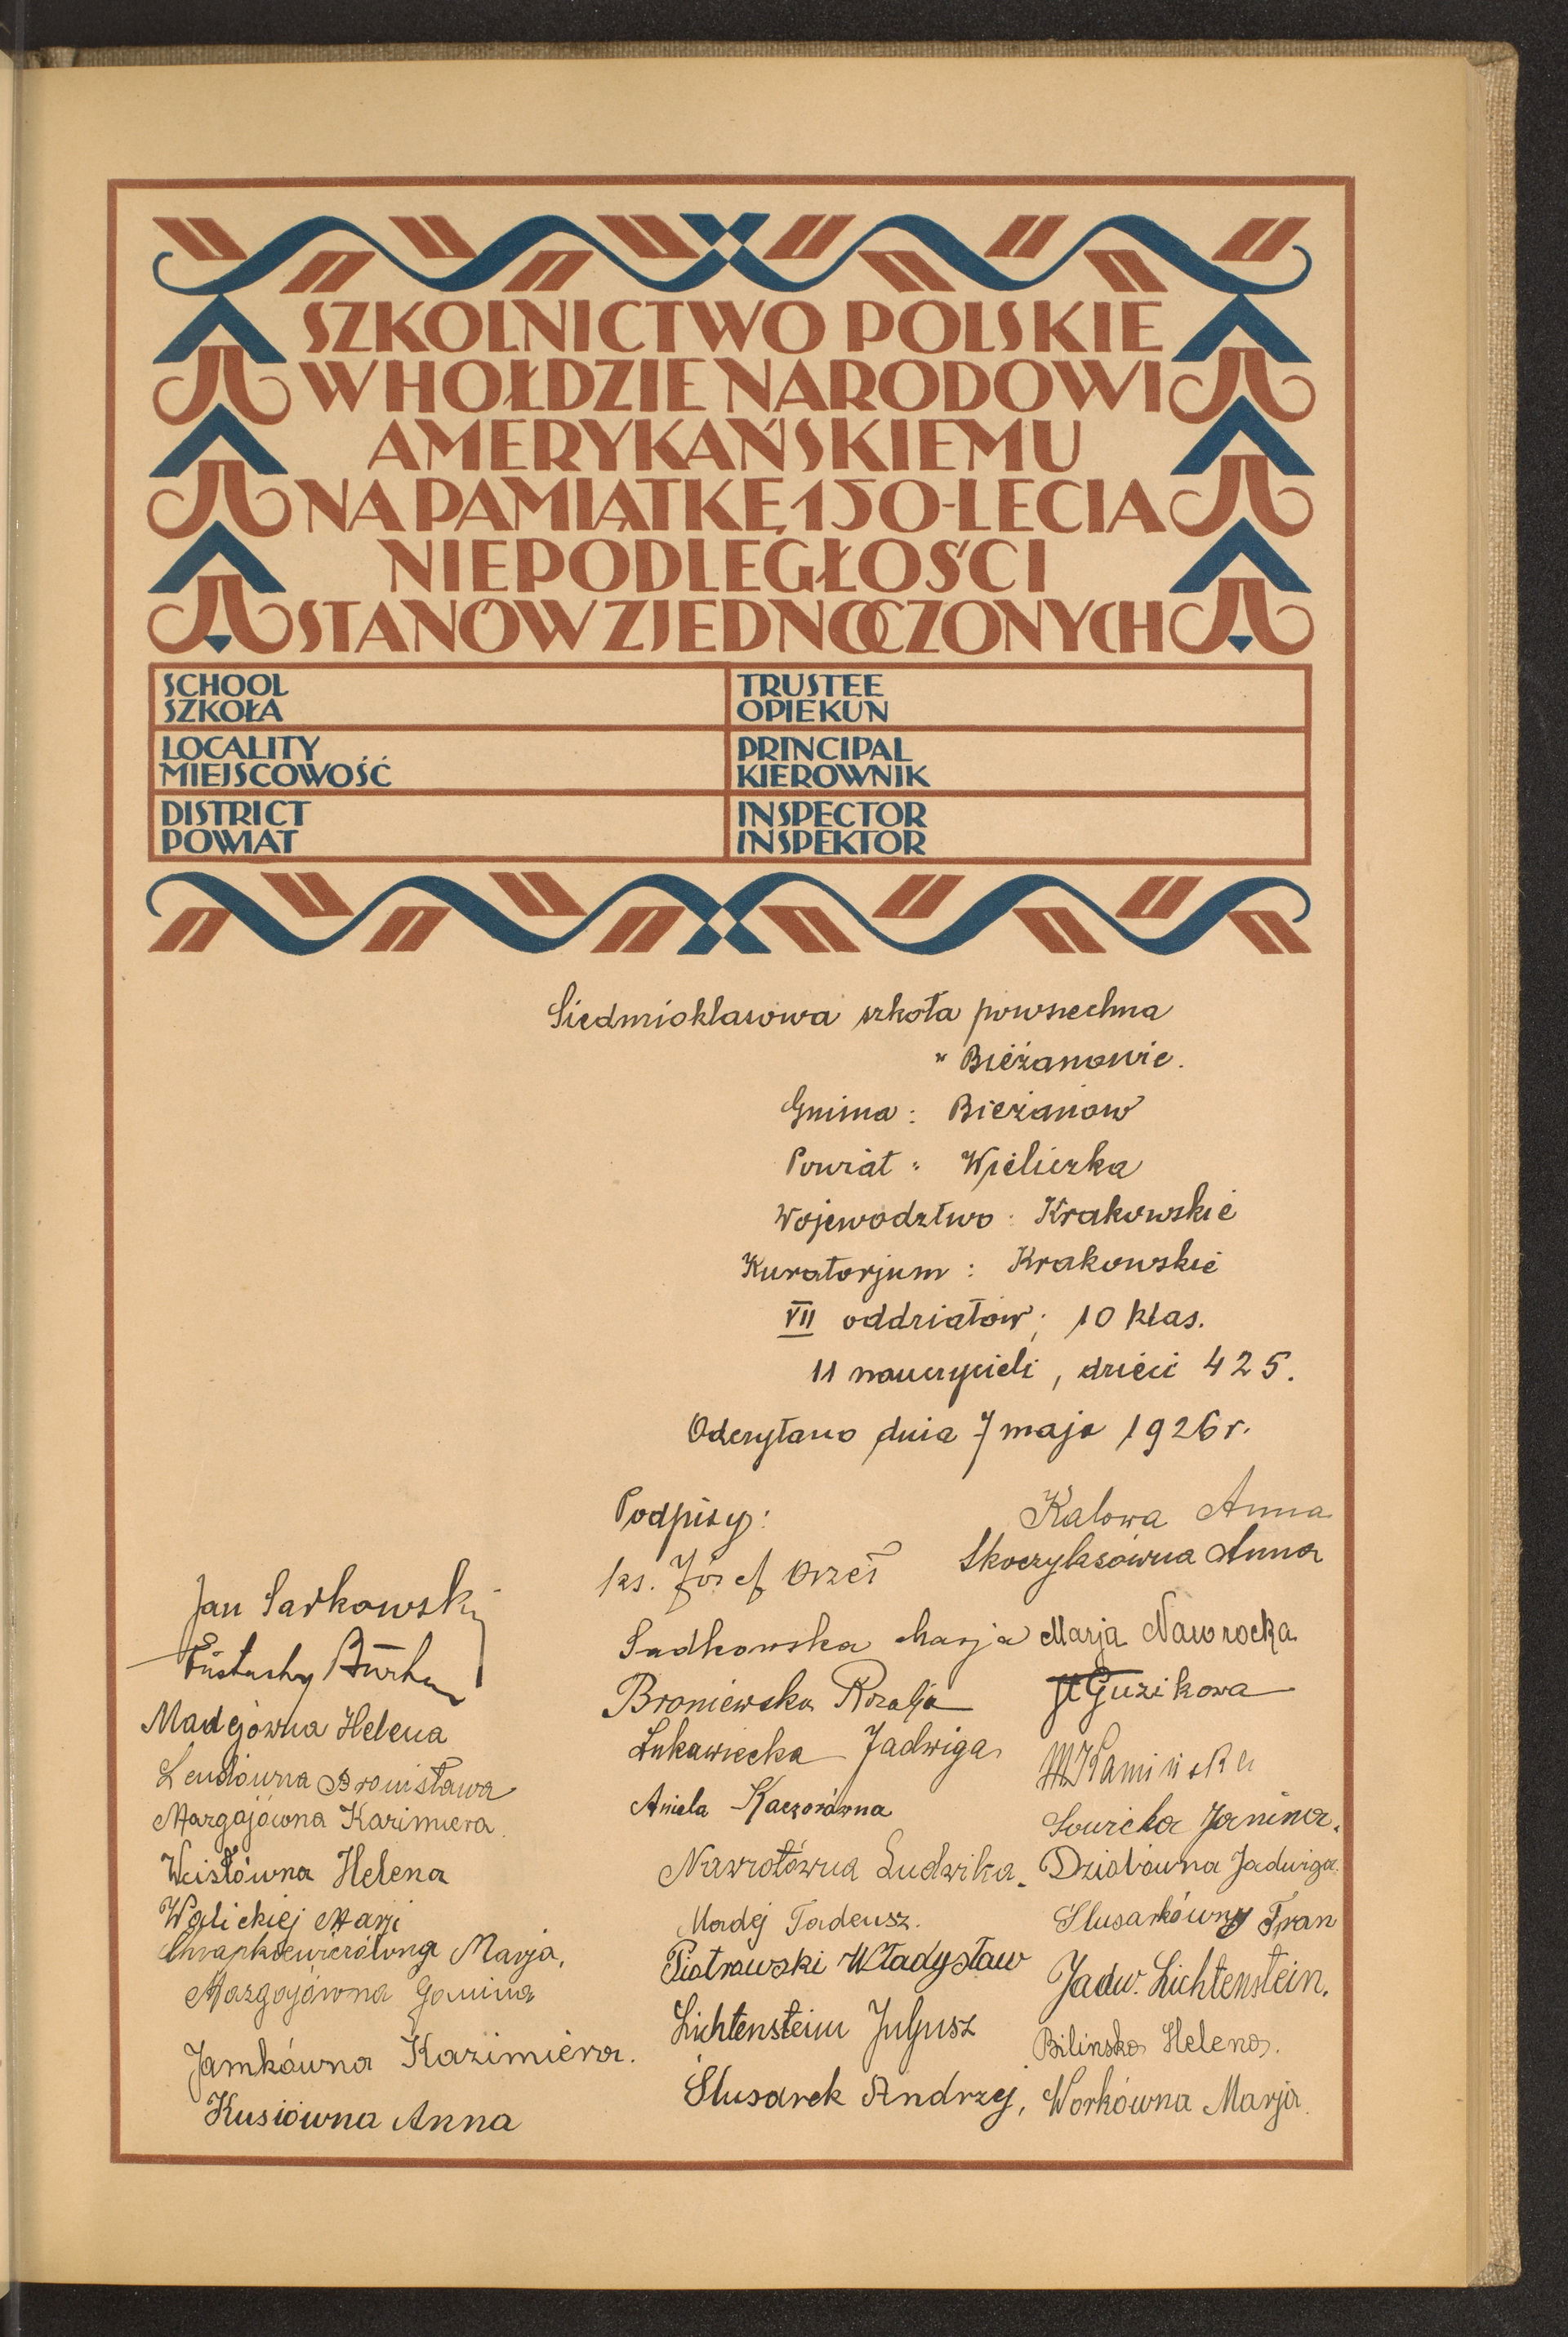 SZKOLNICTWO POLSKIE
W HOŁDZIE NARODOWI
AMERYKAŃSKIEMU
NA PAMIĄTKĘ 150-LECIA
NIEPODLEGŁOŚCI
STANÓW ZJEDNOCZONYCH
SCHOOL
SZKOŁA
TRUSTEE
OPIEKUN
LOCALITY
MIEJSCOWOŚĆ
PRINCIPAL
KIEROWNIK
DISTRICT
POWIAT
INSPECTOR
INSPEKTOR
Siedmioklasowa szkoła powszechna
w Bieżanowie.
Gmina: Bieżanow
Powiat: Wieliczka
Województwo: Krakowskie
Kuratorjum: Krakowskie
VII oddziałów; 10 klas.
11 nauczycieli, dzieci 425.
Odczytano dnia 7 maja 1926 r.
Podpisy:
Jan Sarkowski
Eustachy
Madejówna Helena
Lendówna Bronisława
Margajówna Kazimiera
Wcisłówna Helena
Walickiej Marji
Marja,
Margajówna Janina
Jamkówna Kazimiera.
Kusiówna Anna
ks. Józef Orzeł
Sadkowska Marja
Broniewska Rozalja
Łukawiecka Jadwiga
Aniela Kaczorówna
Nawrotówna Ludwika.
Madej Tadeusz.
Piotrowski Władysław
Lichtenstein Juljusz
Ślusarek Andrzej,
Kalowa Anna
Skoczylasówna Anna
Marja Nawrocka
Guzikowa
M Kamińska
Sowicka Janina.
Dziobówna Jadwiga.
Slusarkówny Fran
Jadw. Lichtenstein.
Bilinska Helena.
Workówna Marja.